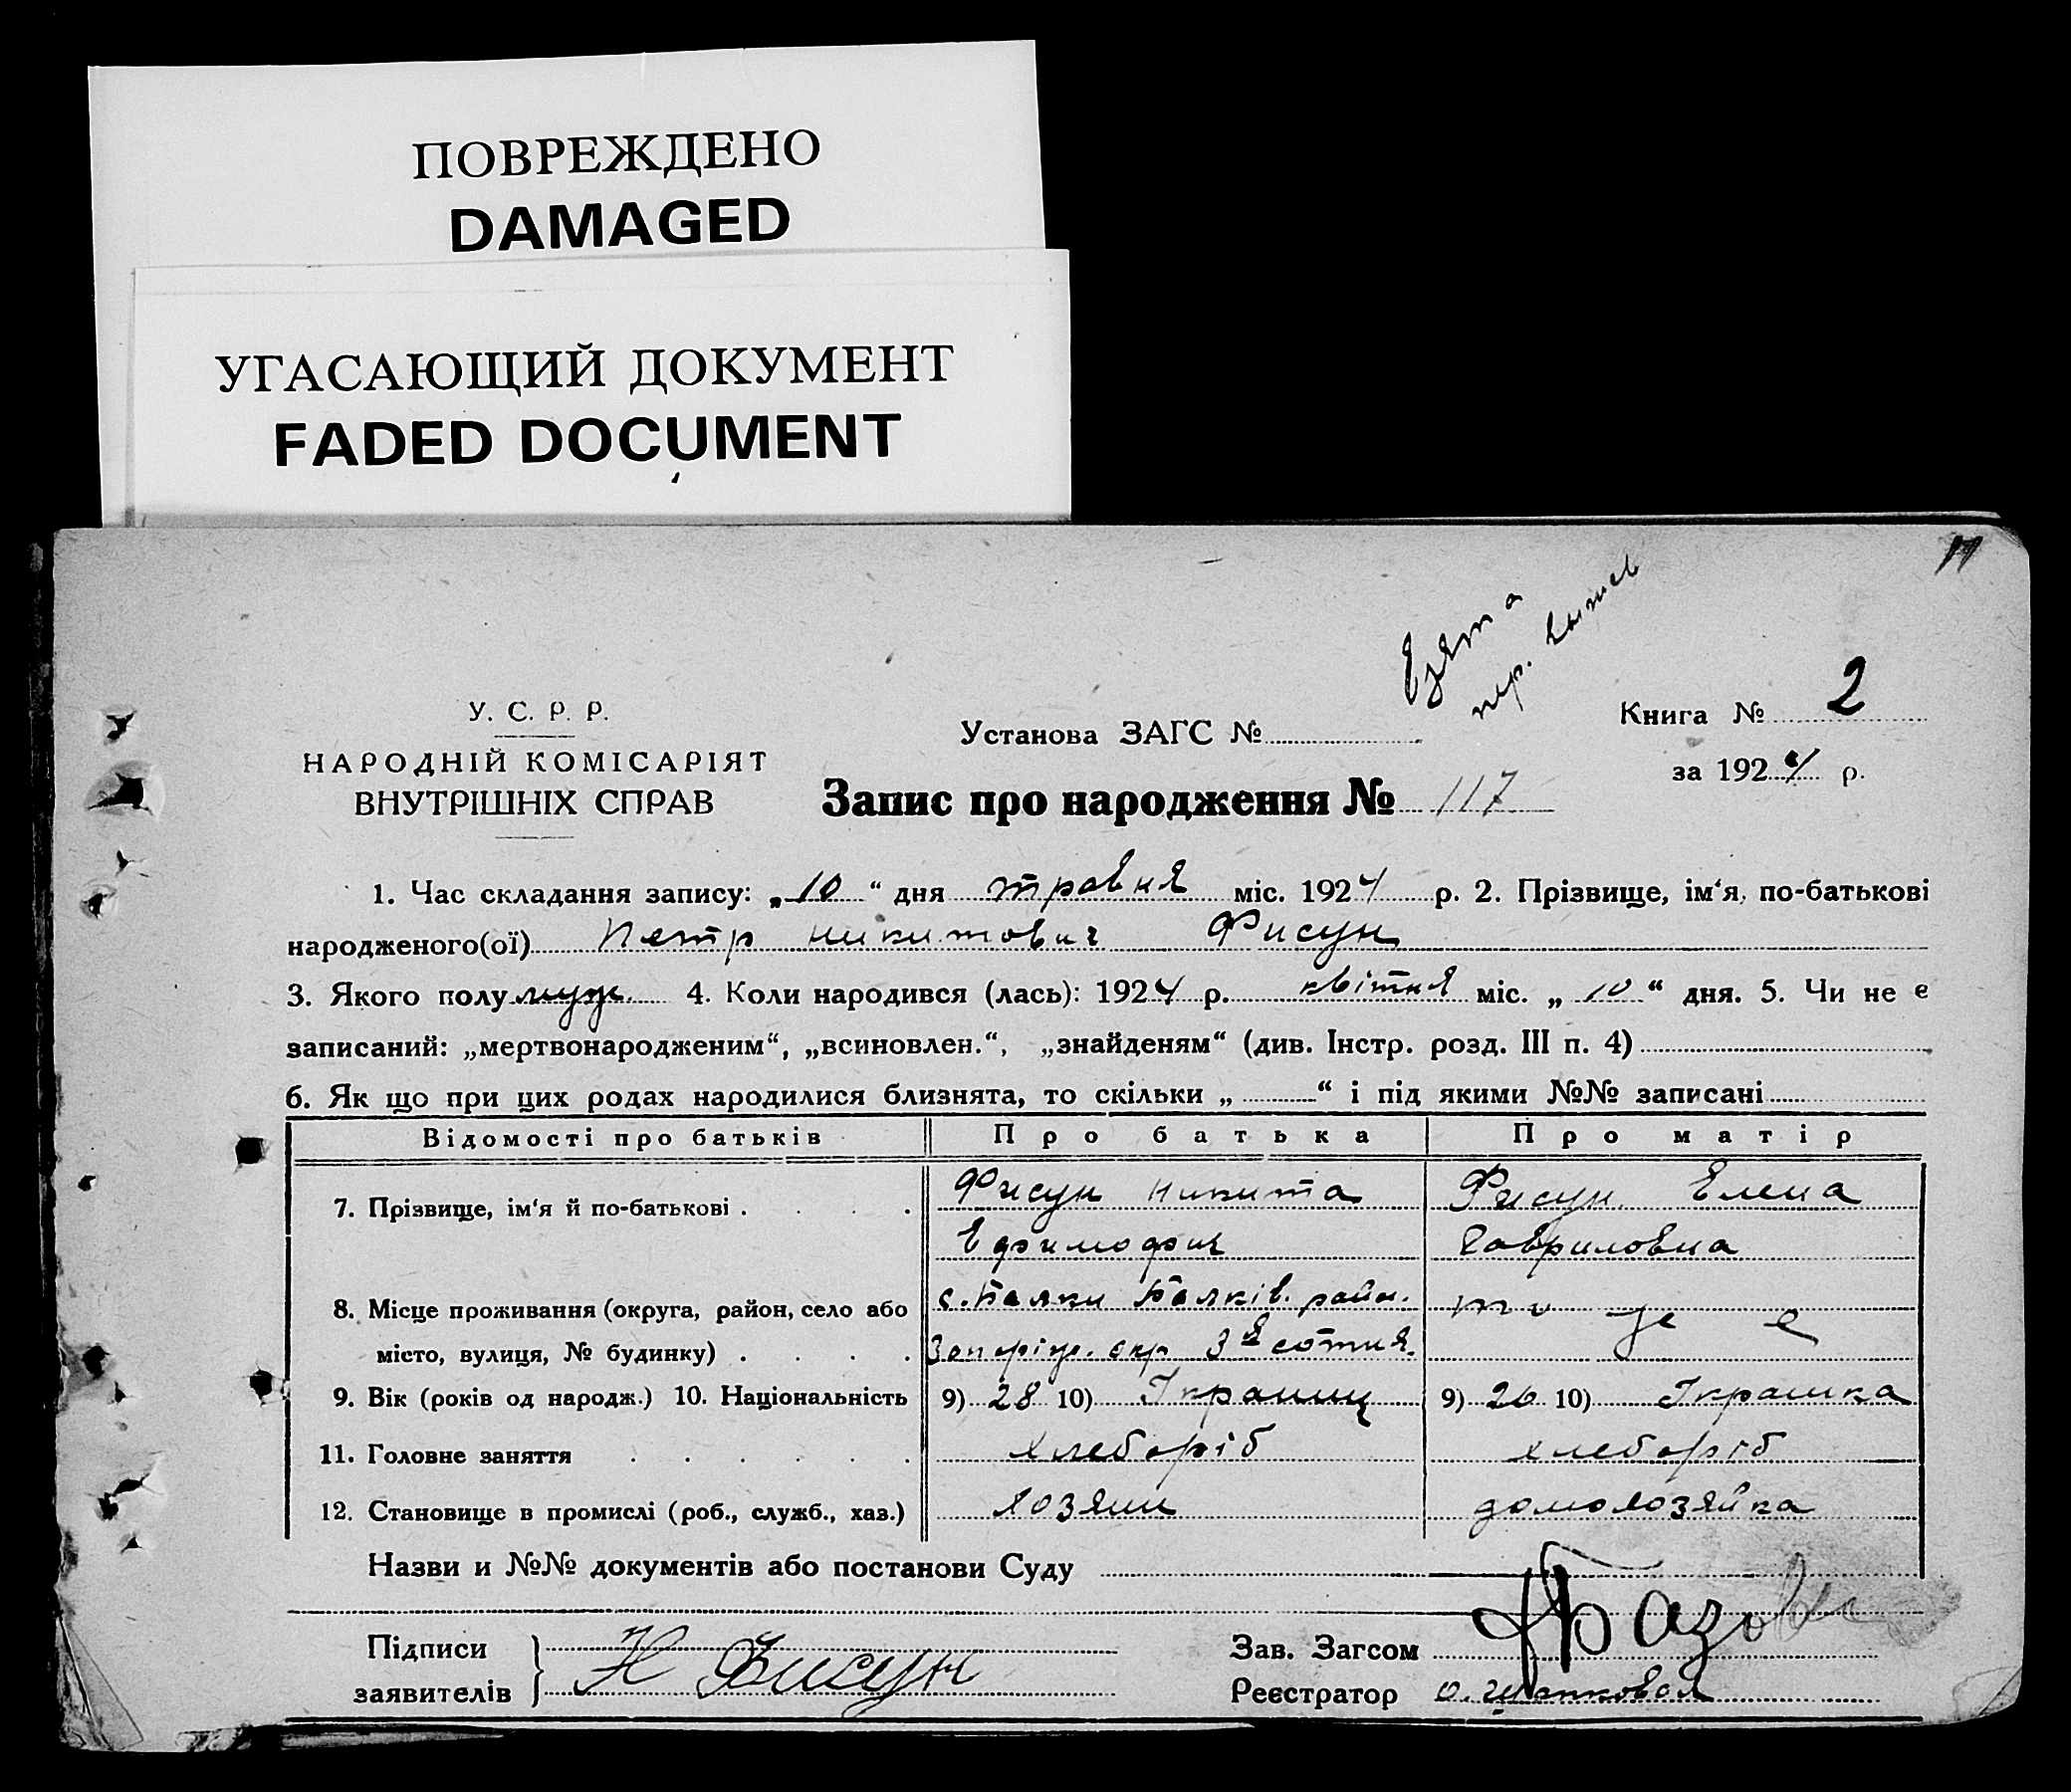 ПОВРЕЖДЕНО
DAMAGED
УГАСАЮЩИЙ ДОКУМЕНТ
FADED DOCUMENT
Взята
У. С. Р. Р.
НАРОДНІЙ КОМІСАРІЯТ
ВНУТРІШНІХ СПРАВ
Установа ЗАГС №
Книга № 2
за 1924 р.
Запис про народження № 117
1. Час складання запису: „10“ дня травня міс. 1924 р. 2. Прізвище, ім‘я, по-батькові
народженого(ої) Петр Никитович Фисун
3. Якого полу муж. 4. Коли народився (лась): 1924 р. квітня міс. „10“ дня. 5. Чи не є
записаний: „мертвонародженим“, „всиновлен.“, „знайденям“ (див. Інстр. розд. III п. 4)
6. Як що при цих родах народилися близнята, то скільки „ “ і під якими №№ записані
Відомості про батьків Про батька Про матір
7. Прізвище, ім‘я й по-батькові . . . . Фисун Никита Фисун Елена
Ефимофич Гавриловна
8. Місце проживання (округа, район, село або с. Балки Балків. район. то же
місто, вулиця, № будинку) . . . . Запоріж. окр 3я сотня.
9. Вік (років од народж.) 10. Національність 9) 28 10) Украинц 9) 26 10) Украинка
11. Головне заняття . . . . . . хлеборіб хлеборіб
12. Становище в промислі (роб., служб., хаз.) хозяин домохозяйка
Назви и №№ документів або постанови Суду
Підписи
заявителів Н Фисун
Зав. Загсом
Реєстратор